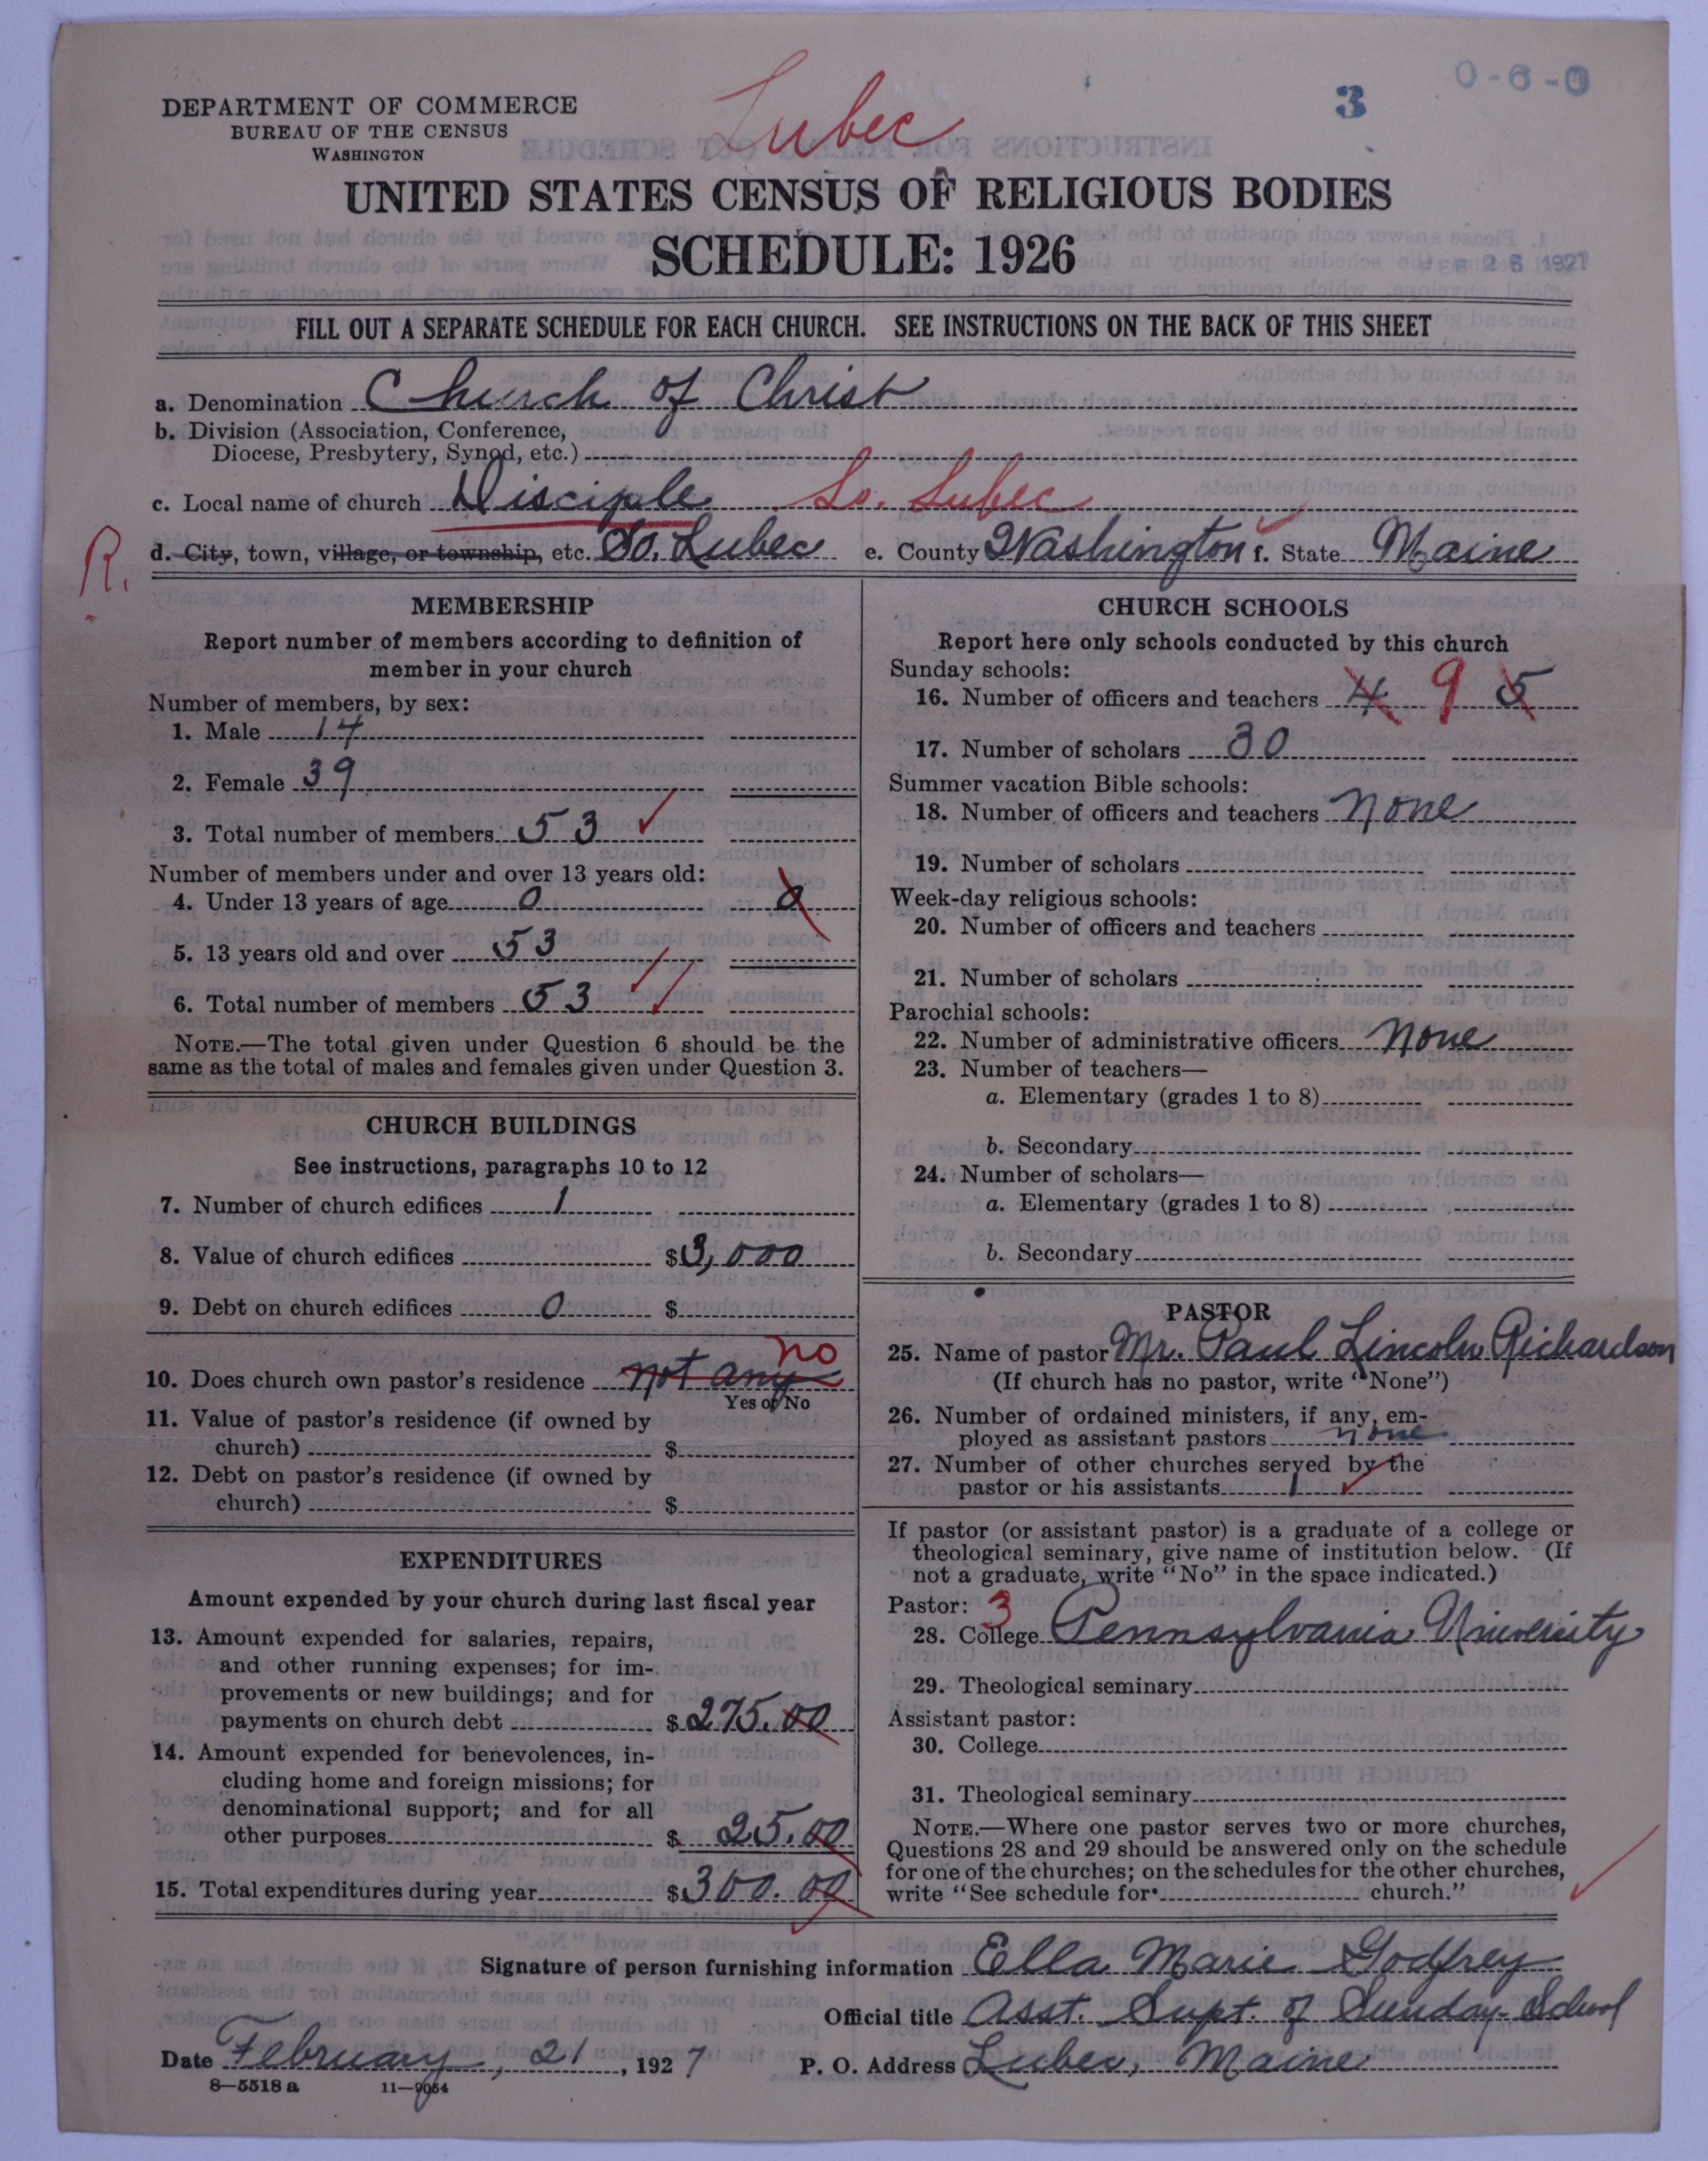 O-6-0
3
DEPARTMENT OF COMMERCE
BUREAU OF THE CENSUS
WASHINGTON
Lubec
UNITED STATES CENSUS OF RELIGIOUS BODIES
SCHEDULE: 1926
FEB 26 1927
FILL OUT A SEPARATE SCHEDULE FOR EACH CHURCH. SEE INSTRUCTIONS ON THE BACK OF THIS SHEET
a. Denomination Church of Christ
b. Division (Association, Conference,
Diocese, Presbytery, Synod, etc.)
c. Local name of church Disciple So. Lubec
R.
d. City, town, village, or township, etc. So. Lubec e. County Washington f. State Maine
MEMBERSHIP
Report number of members according to definition of
member in your church
Number of members, by sex:
1. Male 14
2. Female 39
3. Total number of members 53
Number of members under and over 13 years old:
4. Under 13 years of age 0 0
5. 13 years old and over 53
6. Total number of members 53
NOTE.—The total given under Question 6 should be the
same as the total of males and females given under Question 3.
CHURCH BUILDINGS
See instructions, paragraphs 10 to 12
7. Number of church edifices 1
8. Value of church edifices $3,000
9. Debt on church edifices 0 $
10. Does church own pastor's residence not any no
Yes or No
11. Value of pastor's residence (if owned by
church) $
12. Debt on pastor's residence (if owned by
church) $
EXPENDITURES
Amount expended by your church during last fiscal year
13. Amount expended for salaries, repairs,
and other running expenses; for im-
provements or new buildings; and for
payments on church debt $275.00
14. Amount expended for benevolences, in-
cluding home and foreign missions; for
denominational support; and for all
other purposes $ 25.00
15. Total expenditures during year $300.00
CHURCH SCHOOLS
Report here only schools conducted by this church
Sunday schools:
16. Number of officers and teachers 4 9 5
17. Number of scholars 30
Summer vacation Bible schools:
18. Number of officers and teachers none
19. Number of scholars
Week-day religious schools:
20. Number of officers and teachers
21. Number of scholars
Parochial schools:
22. Number of administrative officers none
23. Number of teachers—
a. Elementary (grades 1 to 8)
b. Secondary
24. Number of scholars—
a. Elementary (grades 1 to 8)
b. Secondary
PASTOR
25. Name of pastor Mr. Paul Lincoln Richardson
(If church has no pastor, write "None")
26. Number of ordained ministers, if any, em-
ployed as assistant pastors none
27. Number of other churches served by the
pastor or his assistants 1
If pastor (or assistant pastor) is a graduate of a college or
theological seminary, give name of institution below. (If
not a graduate, write "No" in the space indicated.)
Pastor: 3
28. College Pennsylvania University
29. Theological seminary
Assistant pastor:
30. College
31. Theological seminary
NOTE.—Where one pastor serves two or more churches,
Questions 28 and 29 should be answered only on the schedule
for one of the churches; on the schedules for the other churches,
write "See schedule for church."
Signature of person furnishing information Ella Marie Godfrey
Official title Asst. Supt. of Sunday-School
Date February, 21, 1927 P. O. Address Lubec, Maine
8—5518 a 11—9054